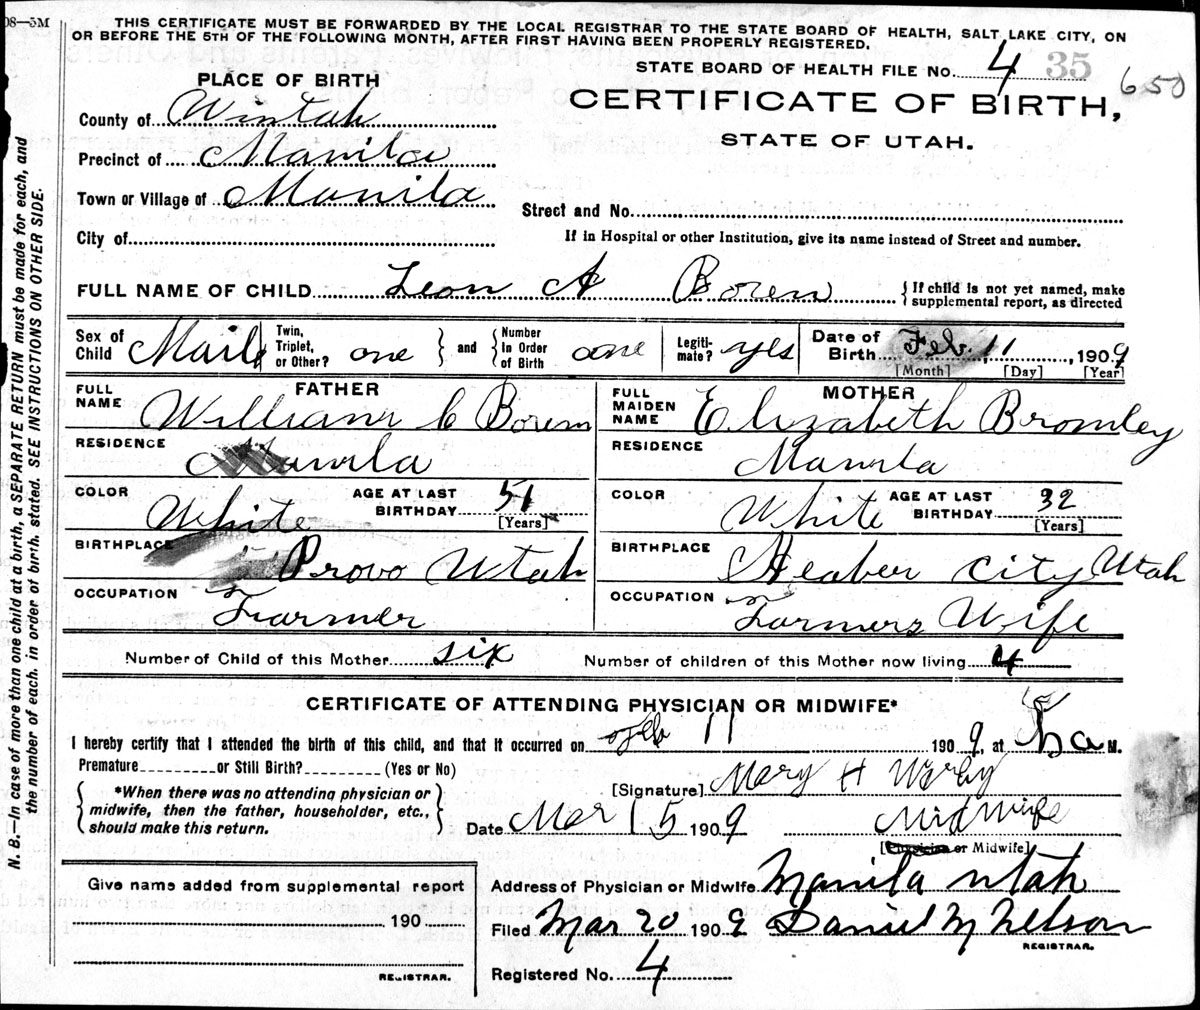 08—5M
THIS CERTIFICATE MUST BE FORWARDED BY THE LOCAL REGISTRAR TO THE STATE BOARD OF HEALTH, SALT LAKE CITY, ON
OR BEFORE THE 5TH OF THE FOLLOWING MONTH, AFTER FIRST HAVING BEEN PROPERLY REGISTERED.
STATE BOARD OF HEALTH FILE NO. 4 35
650
PLACE OF BIRTH
CERTIFICATE OF BIRTH,
STATE OF UTAH.
County of Wintah
Precinct of Manila
Town or Village of Manila
Street and No.
City of
If in Hospital or other Institution, give its name instead of Street and number.
FULL NAME OF CHILD Leon A Boren { If child is not yet named, make supplemental report, as directed
Sex of Child Maile Twin, Triplet, or Other? one } and { Number In Order of Birth one Legiti-mate? yes Date of Birth Feb. 11, 1909
[Month] [Day] [Year]
FATHER
FULL NAME William C Boren
RESIDENCE Manila
COLOR White AGE AT LAST BIRTHDAY 51 [Years]
BIRTHPLACE Provo Utah
OCCUPATION Farmer
MOTHER
FULL MAIDEN NAME Elizabeth Bromley
RESIDENCE Manila
COLOR White AGE AT LAST BIRTHDAY 32 [Years]
BIRTHPLACE Heaber City Utah
OCCUPATION Farmers Wife
Number of Child of this Mother six Number of children of this Mother now living 4
CERTIFICATE OF ATTENDING PHYSICIAN OR MIDWIFE*
I hereby certify that I attended the birth of this child, and that it occurred on Feb 11 1909, at M.
Premature or Still Birth? (Yes or No)
[Signature] Mary H
{ *When there was no attending physician or midwife, then the father, householder, etc., should make this return. }
Date Mar 15 1909 MidWife
[Physician or Midwife]
Address of Physician or Midwife Manila Utah
Filed Mar 20 1909 Daniel M Nelson
REGISTRAR.
Registered No. 4
Give name added from supplemental report
190
REGISTRAR.
N. B.—In case of more than one child at a birth, a SEPARATE RETURN must be made for each, and
the number of each, in order of birth, stated. SEE INSTRUCTIONS ON OTHER SIDE.